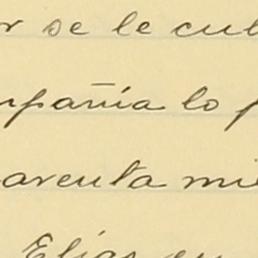 r se le cub
mpañía lo p
arenta mil
Elías en